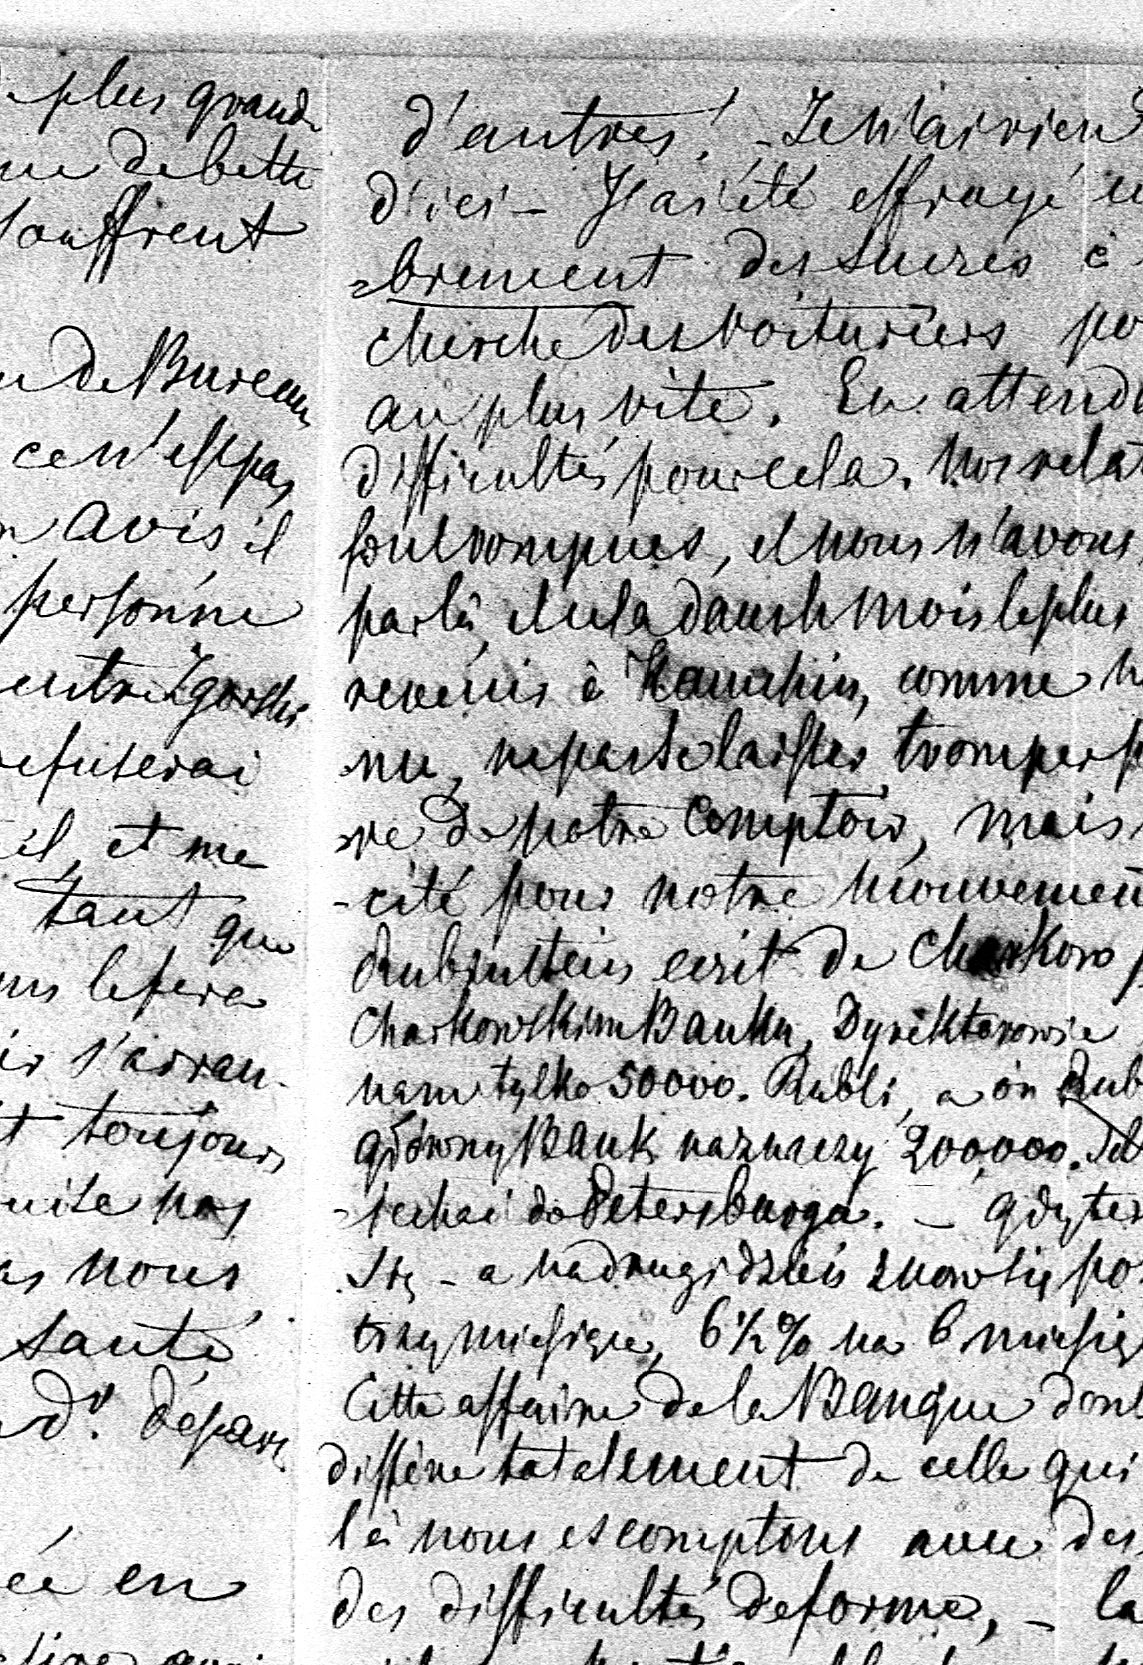 plus grand
de cette
souffrent
de Bureau
ce n'est pas
avis il
personne
entre Zgorski
refuserai
il, et me
tant que
le fera
s'arran-
toujours
suite nos
nous
santé
dr. dépare
en
d'autres! - Je n'ai rien
d'ici - J'ai été effrayé
-brement des sucres
cherche des voituriers
au plus vite. En attend
difficultés pour cela. Nos relat
sont rompues, et nous n'avons
par là, et cela dans le mois le plus
revenir à comme
nu, ne pas se laisser tromper
re de notre Comptoir, mais
-cité pour notre mouvement
ecrit de Charkow
Charkowskim Banku, Dyrektorowie
nam tylko 50000. Rubli, a on Rub
główny Bank naznaczy 200,000.
-jechać do Petersburga. - gdyte
się - a na drugi dzień znow się po
trzy miesiące, 6½% na 6 miesię
Cette affaire de la Banque dont
diffère totalement de celle qui
là nous escomptons avec des
des difficultés de forme, - la